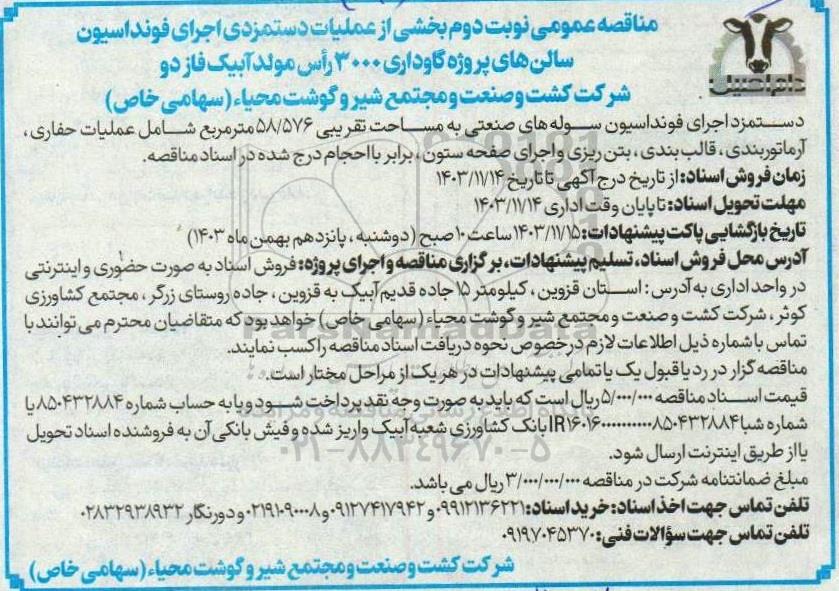 مناقصه عمومی نوبت دوم بخشی از عملیات دستمزدی اجرای فونداسیون
سالن‌های پروژه گاوداری ۳۰۰۰ رأس مولد آبیک فاز دو
شرکت کشت و صنعت و مجتمع شیر و گوشت محیاء (سهامی خاص)
دستمزد اجرای فونداسیون سوله‌های صنعتی به مساحت تقریبی ۵۸/۵۷۶ مترمربع شامل عملیات حفاری،
آرماتوربندی، قالب‌بندی، بتن‌ریزی و اجرای صفحه ستون، برابر با احجام درج شده در اسناد مناقصه.
زمان فروش اسناد: از تاریخ درج آگهی تا تاریخ ۱۴۰۳/۱۱/۱۴
مهلت تحویل اسناد: تا پایان وقت اداری ۱۴۰۳/۱۱/۱۴
تاریخ بازگشایی پاکت پیشنهادات: ۱۴۰۳/۱۱/۱۵ ساعت ۱۰ صبح (دوشنبه، پانزدهم بهمن ماه ۱۴۰۳)
آدرس محل فروش اسناد، تسلیم پیشنهادات، برگزاری مناقصه و اجرای پروژه: فروش اسناد به صورت حضوری و اینترنتی
در واحد اداری به آدرس: استان قزوین، کیلومتر ۱۵ جاده قدیم آبیک به قزوین، جاده روستای زرگر، مجتمع کشاورزی
کوثر، شرکت کشت و صنعت و مجتمع شیر و گوشت محیاء (سهامی خاص) خواهد بود که متقاضیان محترم می‌توانند با
تماس با شماره ذیل اطلاعات لازم درخصوص نحوه دریافت اسناد مناقصه را کسب نمایند.
مناقصه گزار در رد یا قبول یک یا تمامی پیشنهادات در هر یک از مراحل مختار است.
قیمت اسناد مناقصه ۵/۰۰۰/۰۰۰ ریال است که باید به صورت وجه نقد پرداخت شود و یا به حساب شماره ۸۵۰۴۳۲۸۸۴ یا
بانک کشاورزی شعبه آبیک واریز شده و فیش بانکی آن به فروشنده اسناد تحویل
یا از طریق اینترنت ارسال شود.
مبلغ ضمانتنامه شرکت در مناقصه ۳/۰۰۰/۰۰۰/۰۰۰ ریال می‌باشد.
تلفن تماس جهت اخذ اسناد: خرید اسناد: ۰۹۹۱۲۱۳۶۲۲۱ و ۰۹۱۲۷۴۱۷۹۴۲ و ۰۲۱۹۱۰۹۰۰۰۸ و دورنگار ۰۲۸۳۲۹۳۸۹۳۲
تلفن تماس جهت سؤالات فنی: ۰۹۱۹۷۰۴۵۳۷۰
شرکت کشت و صنعت و مجتمع شیر و گوشت محیاء (سهامی خاص)